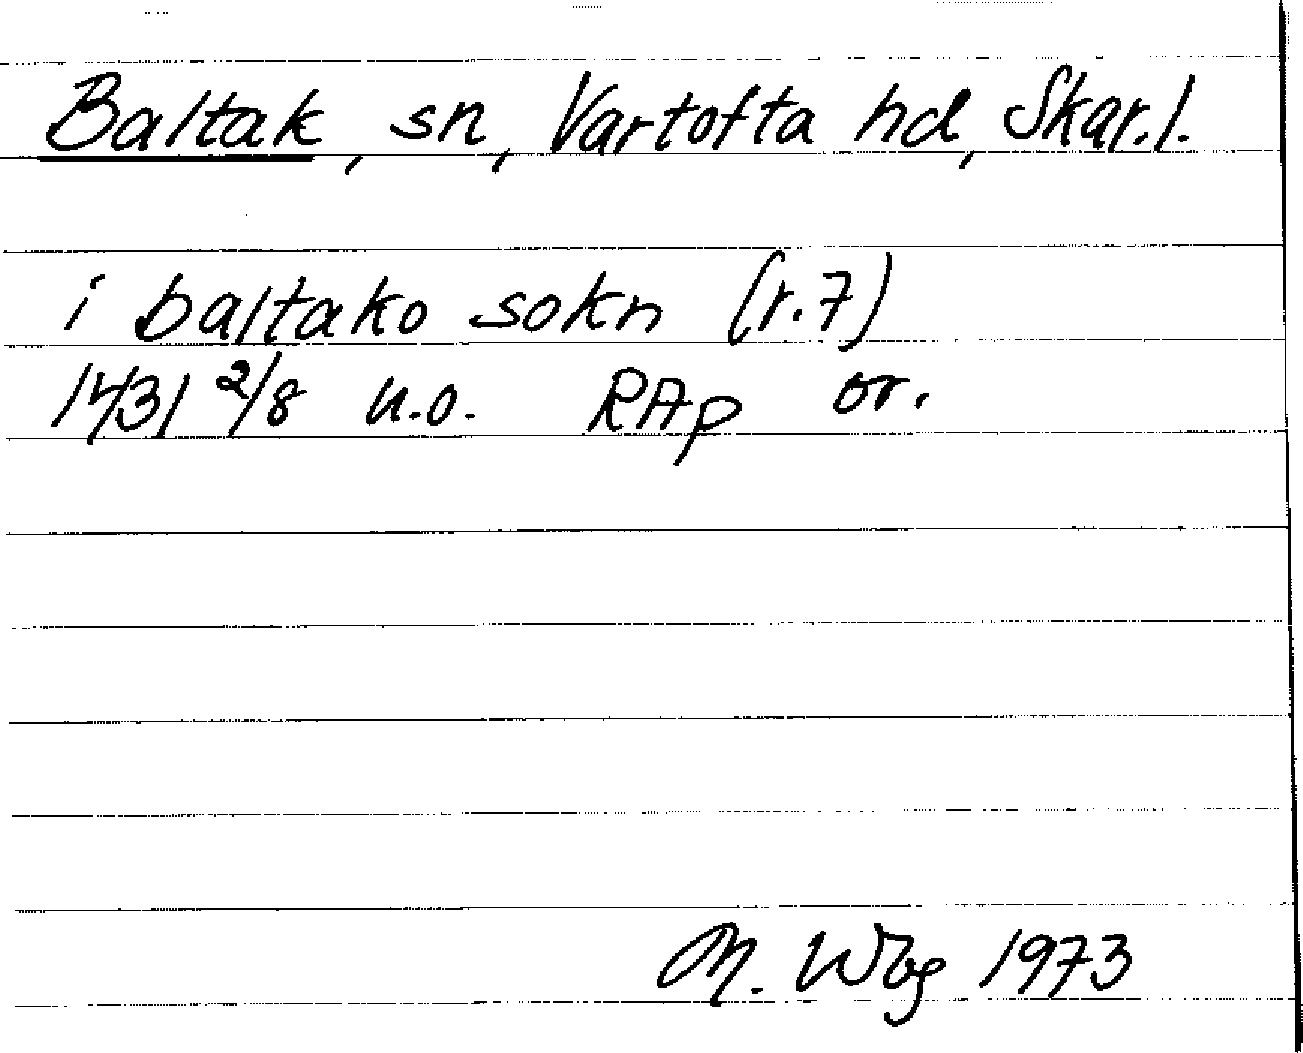 Baltak, sn, Vartofta hd, Skar.l.
i baltako sokn (r.7)
1431 2/8 u.o. RAp or.
M. Wbg 1973